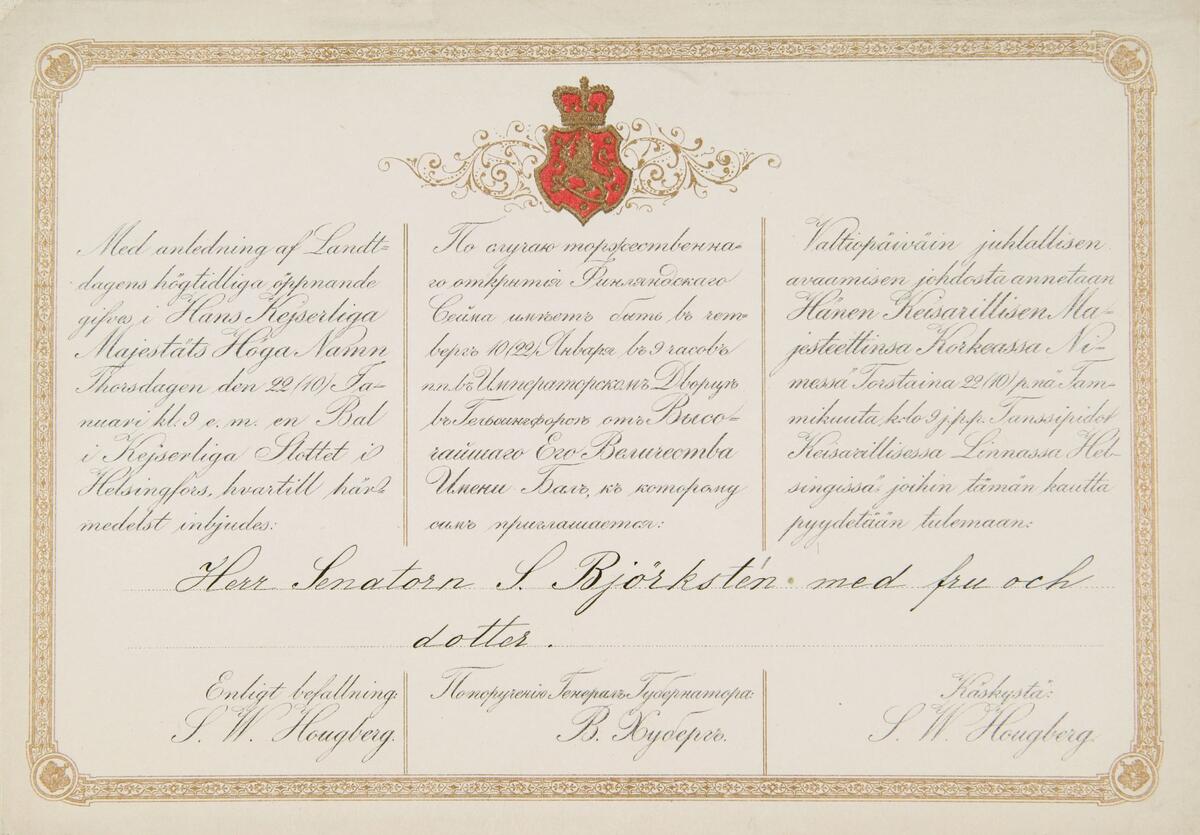 Med anledning af Landt-
dagens högtidliga öppnande
gifves i Hans Kejserliga
Majestäts Höga Namn
Thorsdagen den 22 (10) Ja-
nuari kl. 9 e. m. en Bal
i Kejserliga Slottet i
Helsingfors, hvartill här-
medelst inbjudes:
По случаю торжественна-
го открытія Финляндскаго
Сейма имѣетъ быть въ чет-
вергъ 10 (22) Января въ 9 часовъ
п.п. въ Императорскомъ Дворцѣ
въ Гельсингфорсѣ отъ Высо-
чайшаго Его Величества
Имени Балъ, къ которому
симъ приглашается:
Valtiopäiväin juhlallisen
avaamisen johdosta annetaan
Hänen Keisarillisen Ma-
jesteettinsa Korkeassa Ni-
messä Torstaina 22 (10) p:nä Tam-
mikuuta k:lo 9 j.p.p. Tanssipidot
Keisarillisessa Linnassa Hel-
singissä, joihin tämän kautta
pyydetään tulemaan:
Herr Senatorn S. Björkstén med fru och
dotter.
Enligt befallning:
S. W. Hougberg.
По порученію Генералъ Губернатора:
В. Хубергъ.
Käskystä:
S. W. Hougberg.